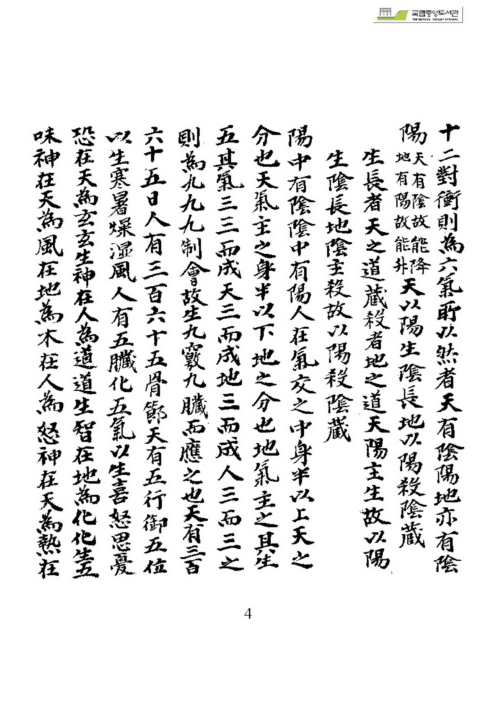 국립중앙도서관
THE NATIONAL LIBRARY OF KOREA
十二對衝則為六氣所以然者天有陰陽地亦有陰
陽天有陰故能降地有陽故能升天以陽生陰長地以陽殺陰藏
生長者天之道藏殺者地之道天陽主生故以陽
生陰長地陰主殺故以陽殺陰藏
陽中有陰陰中有陽人在氣交之中身半以上天之
分也天氣主之身半以下地之分也地氣主之其生
五其氣三三而成天三而成地三而成人三而三之
則為九九九制會故生九竅九臟而應之也天有三百
六十五日人有三百六十五骨節天有五行御五位
以生寒暑燥湿風人有五臟化五氣以生喜怒思憂
恐在天為玄玄生神在人為道道生智在地為化化生五
味神在天為風在地為木在人為怒神在天為熱在
4